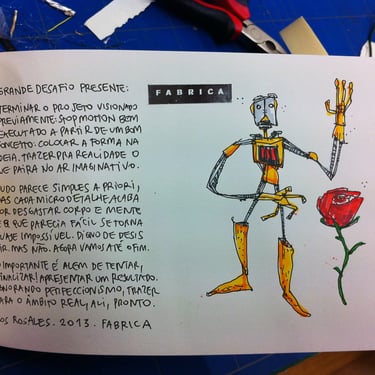 GRANDE DESAFIO PRESENTE:
TERMINAR O PROJETO VISIONADO
PREVIAMENTE: STOPMOTION BEM
EXECUTADO A PARTIR DE UM BOM
CONCEITO: COLOCAR A FORMA NA
IDEIA. TRAZER PRA REALIDADE O
QUE PAIRA NO AR IMAGINATIVO.
TUDO PARECE SIMPLES A PRIORI,
MAS CADA MICRO DETALHE ACABA
POR DESGASTAR CORPO E MENTE
E O QUE PARECIA FÁCIL SE TORNA
QUASE IMPOSSÍVEL. DIGNO DE DESIS
TIR. MAS NÃO. AGORA VAMOS ATÉ O FIM.
O IMPORTANTE É ALÉM DE TENTAR,
FINALIZAR! APRESENTAR UM RESULTADO.
IGNORANDO PERFECCIONISMO, TRAZER
PARA O ÂMBITO REAL, ALI, PRONTO.
ROSALES. 2013. FABRICA
FABRICA